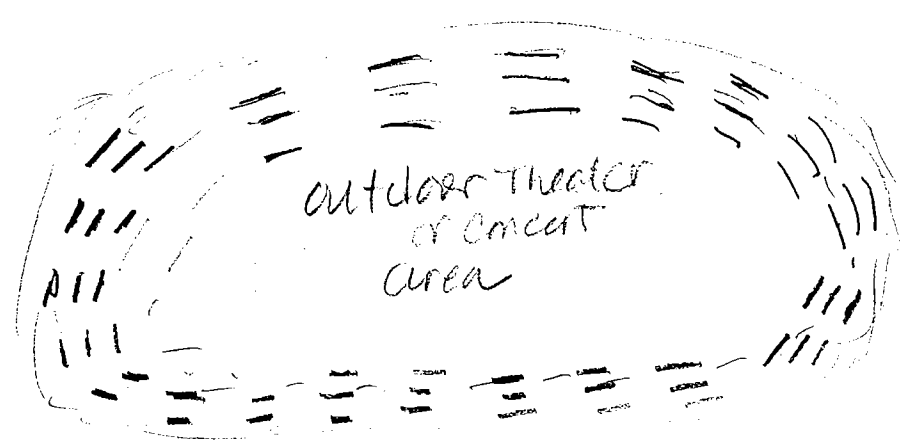 Outdoor Theater
or Concert
area